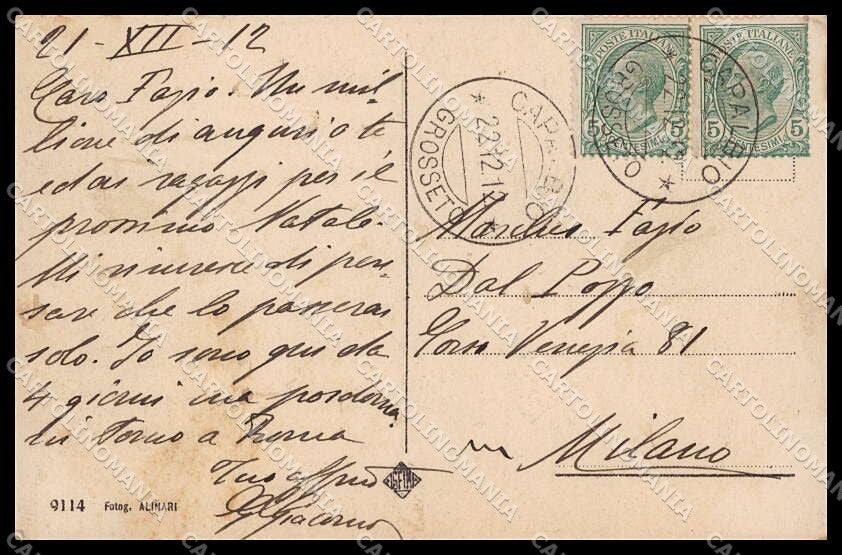 21-XII-12
Caro Fazio. Un mil-
lione di auguri a te
ed ai ragazzi per il
prossimo Natale.
Mi rincresce di pen-
sare che lo passerai
solo. Io sono qui da
4 giorni ma posdoma
ni torno a Roma
Tuo affmo
GGiacomo
9114 Fotog. ALINARI
CAPALBIO
* 22.12.12 *
GROSSETO
POSTE ITALIANE
5 CENTESIMI 5
POSTE ITALIANE
5 CENTESIMI 5
CAPALBIO
GROSSETO
Fazio
Dal Pozzo
Corso Venezia 81
Milano
CARTOLINOMANIA